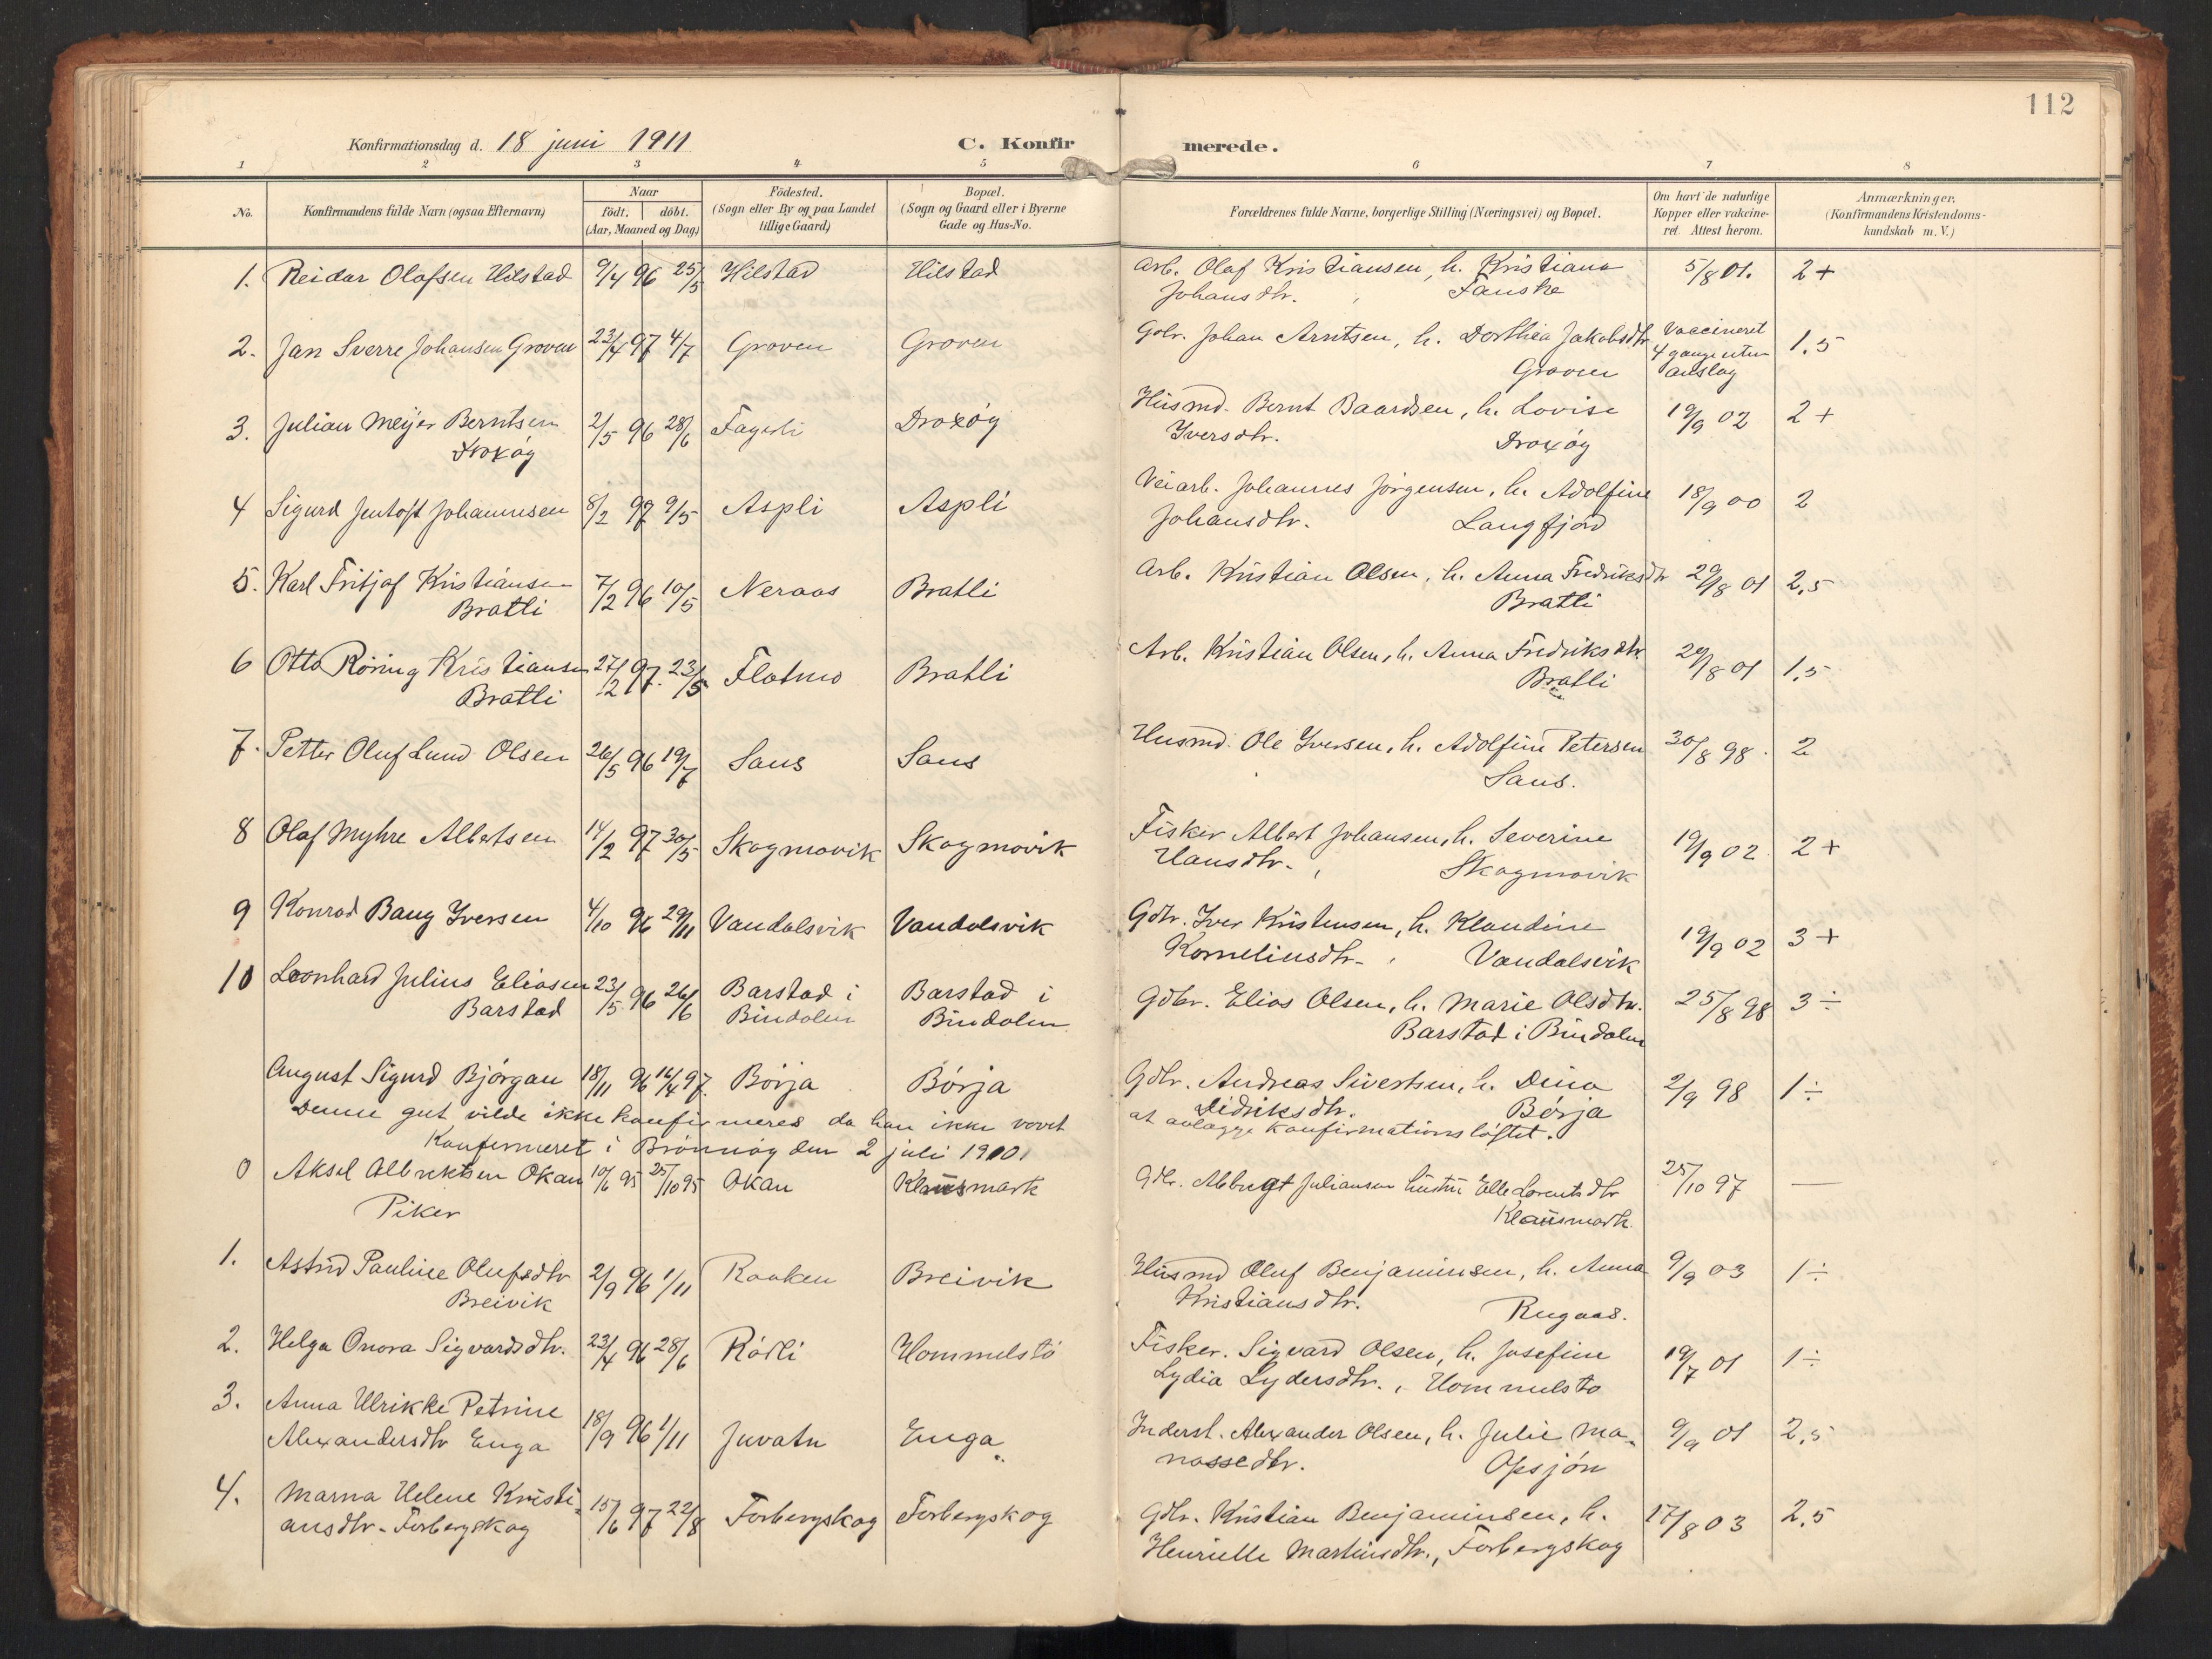 112
Konfirmationsdag d. 18 juni 1911 C. Konfirmerede.
1 2 3 4 5 6 7 8
No. Konfirmandens fulde Navn (ogsaa Efternavn) Naar födt. döbt. (Aar, Maaned og Dag) Födested. (Sogn eller By og paa Landet tillige Gaard) Bopæl. (Sogn og Gaard eller i Byerne Gade og Hus-No. Forældrenes fulde Navne, borgerlige Stilling (Næringsvei) og Bopæl. Om havt de naturlige Kopper eller vakcineret. Attest herom. Anmærkninger. (Konfirmandens Kristendomskundskab m. V.)
1. Reidar Olafsen Hilstad 9/4 96 25/5 Hilstad Hilstad Arb. Olaf Kristiansen, h. Kristiana 5/8 01. 2+
Johansdtr. , Fauske
2. Jan Sverre Johansen Groven 23/4 97 4/7 Groven Groven Gbr. Johan Arntsen, h. Dorthea Jakobsdtr. Vaccineret 1.5
4 gange uten
Groven anslag
3. Julian Meyer Berntsen 2/5 96 28/6 Fagerli Droxøg Husmd. Bernt Baardsen, h. Lovise 19/9 02 2+
Droxøg Iversdtr. Droxøg
4 Sigurd Jentoft Johannesen 8/2 97 9/5 Aspli Aspli Veiarb. Johannes Jørgensen, h. Adolfine 18/9 00 2
Johansdtr. Langfjord
5. Karl Fritjof Kristiansen 7/2 96 10/5 Neraas Bratli Arb. Kristian Olsen, h. Anna Fredriksdtr 29/8 01 2,5
Bratli Bratli
6 Otto Röring Kristiansen 27/2 97. 23/5 Flotmo Bratli Arb. Kristian Olsen, h. Anna Fredriksdtr. 29/8 01 1,5
Bratli Bratli
7. Petter Oluf Lund Olsen 26/5 96 19/7 Saus Saus Husmd. Ole Iversen, h. Adolfine Petersen 30/8 98. 2
Saus.
8 Olaf Myhre Albertsen 14/2 97 30/5 Skogmovik Skogmovik Fisker Albert Johansen, h. Severine 19/9 02 2+
Hansdtr. , Skogmovik
9 Konrad Bang Iversen 4/10 96 29/11 Vandalsvik Vandalsvik Gdbr. Iver Kristensen, h. Klaudine 19/9 02 3+
Korneliusdtr. , Vandalsvik
10 Leonhard Julius Eliasen 23/5 96 26/6 Barstad i Barstad i Gdbr. Elias Olsen, h. Marie Olsdtr. 25/8 98 3÷
Barstad Bindalen Bindalen Barstad i Bindalen
August Sigurd Bjørgan 18/11 96 16/4 97. Børja Børja Gdbr. Andreas Sivertsen, h. Dina 2/9 98 1÷
Didriksdtr. Børja
Denne gut vilde ikke konfirmeres da han ikke vovet at avlægge konfirmationsløftet.
Konfirmeret i Brønnøy den 2 juli 1910
0 Aksel Albrektsen Okan 10/6 95 25/10 95 Okan Klausmark Gdbr. Albregt Juliansen hustru Elle Lorentsdtr 25/10 97 —
Klausmark
Piker
1. Astrid Pauline Olufsdtr 2/9 96 1/11 Raaken Breivik Husmd Oluf Benjaminsen, h. Anna 9/9 03 1÷
Breivik Kristiansdtr. Rugaas.
2. Helga Onora Sigvardsdtr. 23/4 96 28/6 Rødli Hommelstø Fisker. Sigvard Olsen, h. Josefine 19/7 01 1÷
Lydia Lydersdtr. , Hommelstø
3. Anna Ulrikke Petrine
Alexandersdtr Enga 18/9 96 1/11 Juvatn Enga Inderst. Alexander Olsen, h. Julie Ma- 9/9 01 2,5
nassedtr. Opsjøn
4. Marna Helene Kristi- 15/6 97 22/8 Forbergskog Forbergskog Gdbr. Kristian Benjaminsen, h. 17/8 03 2.5
ansdtr. Forbergskog Henrielle Martinsdtr., Forbergskog